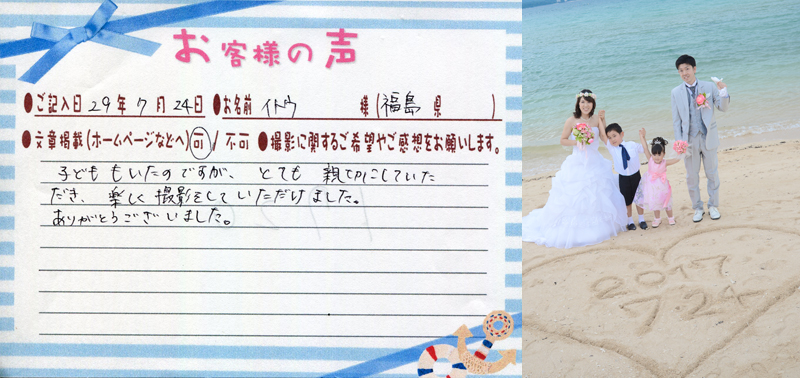 お客様の声
●ご記入日 29年 7月 24日 ●お名前 イトウ 様(福島 県 )
●文章掲載(ホームページなどへ) 可 / 不可 ●撮影に関するご希望やご感想をお願いします。
子どももいたのですが、とても 親切にしていた
だき、楽しく撮影をしていただけました。
ありがとうございました。
2017
7 24